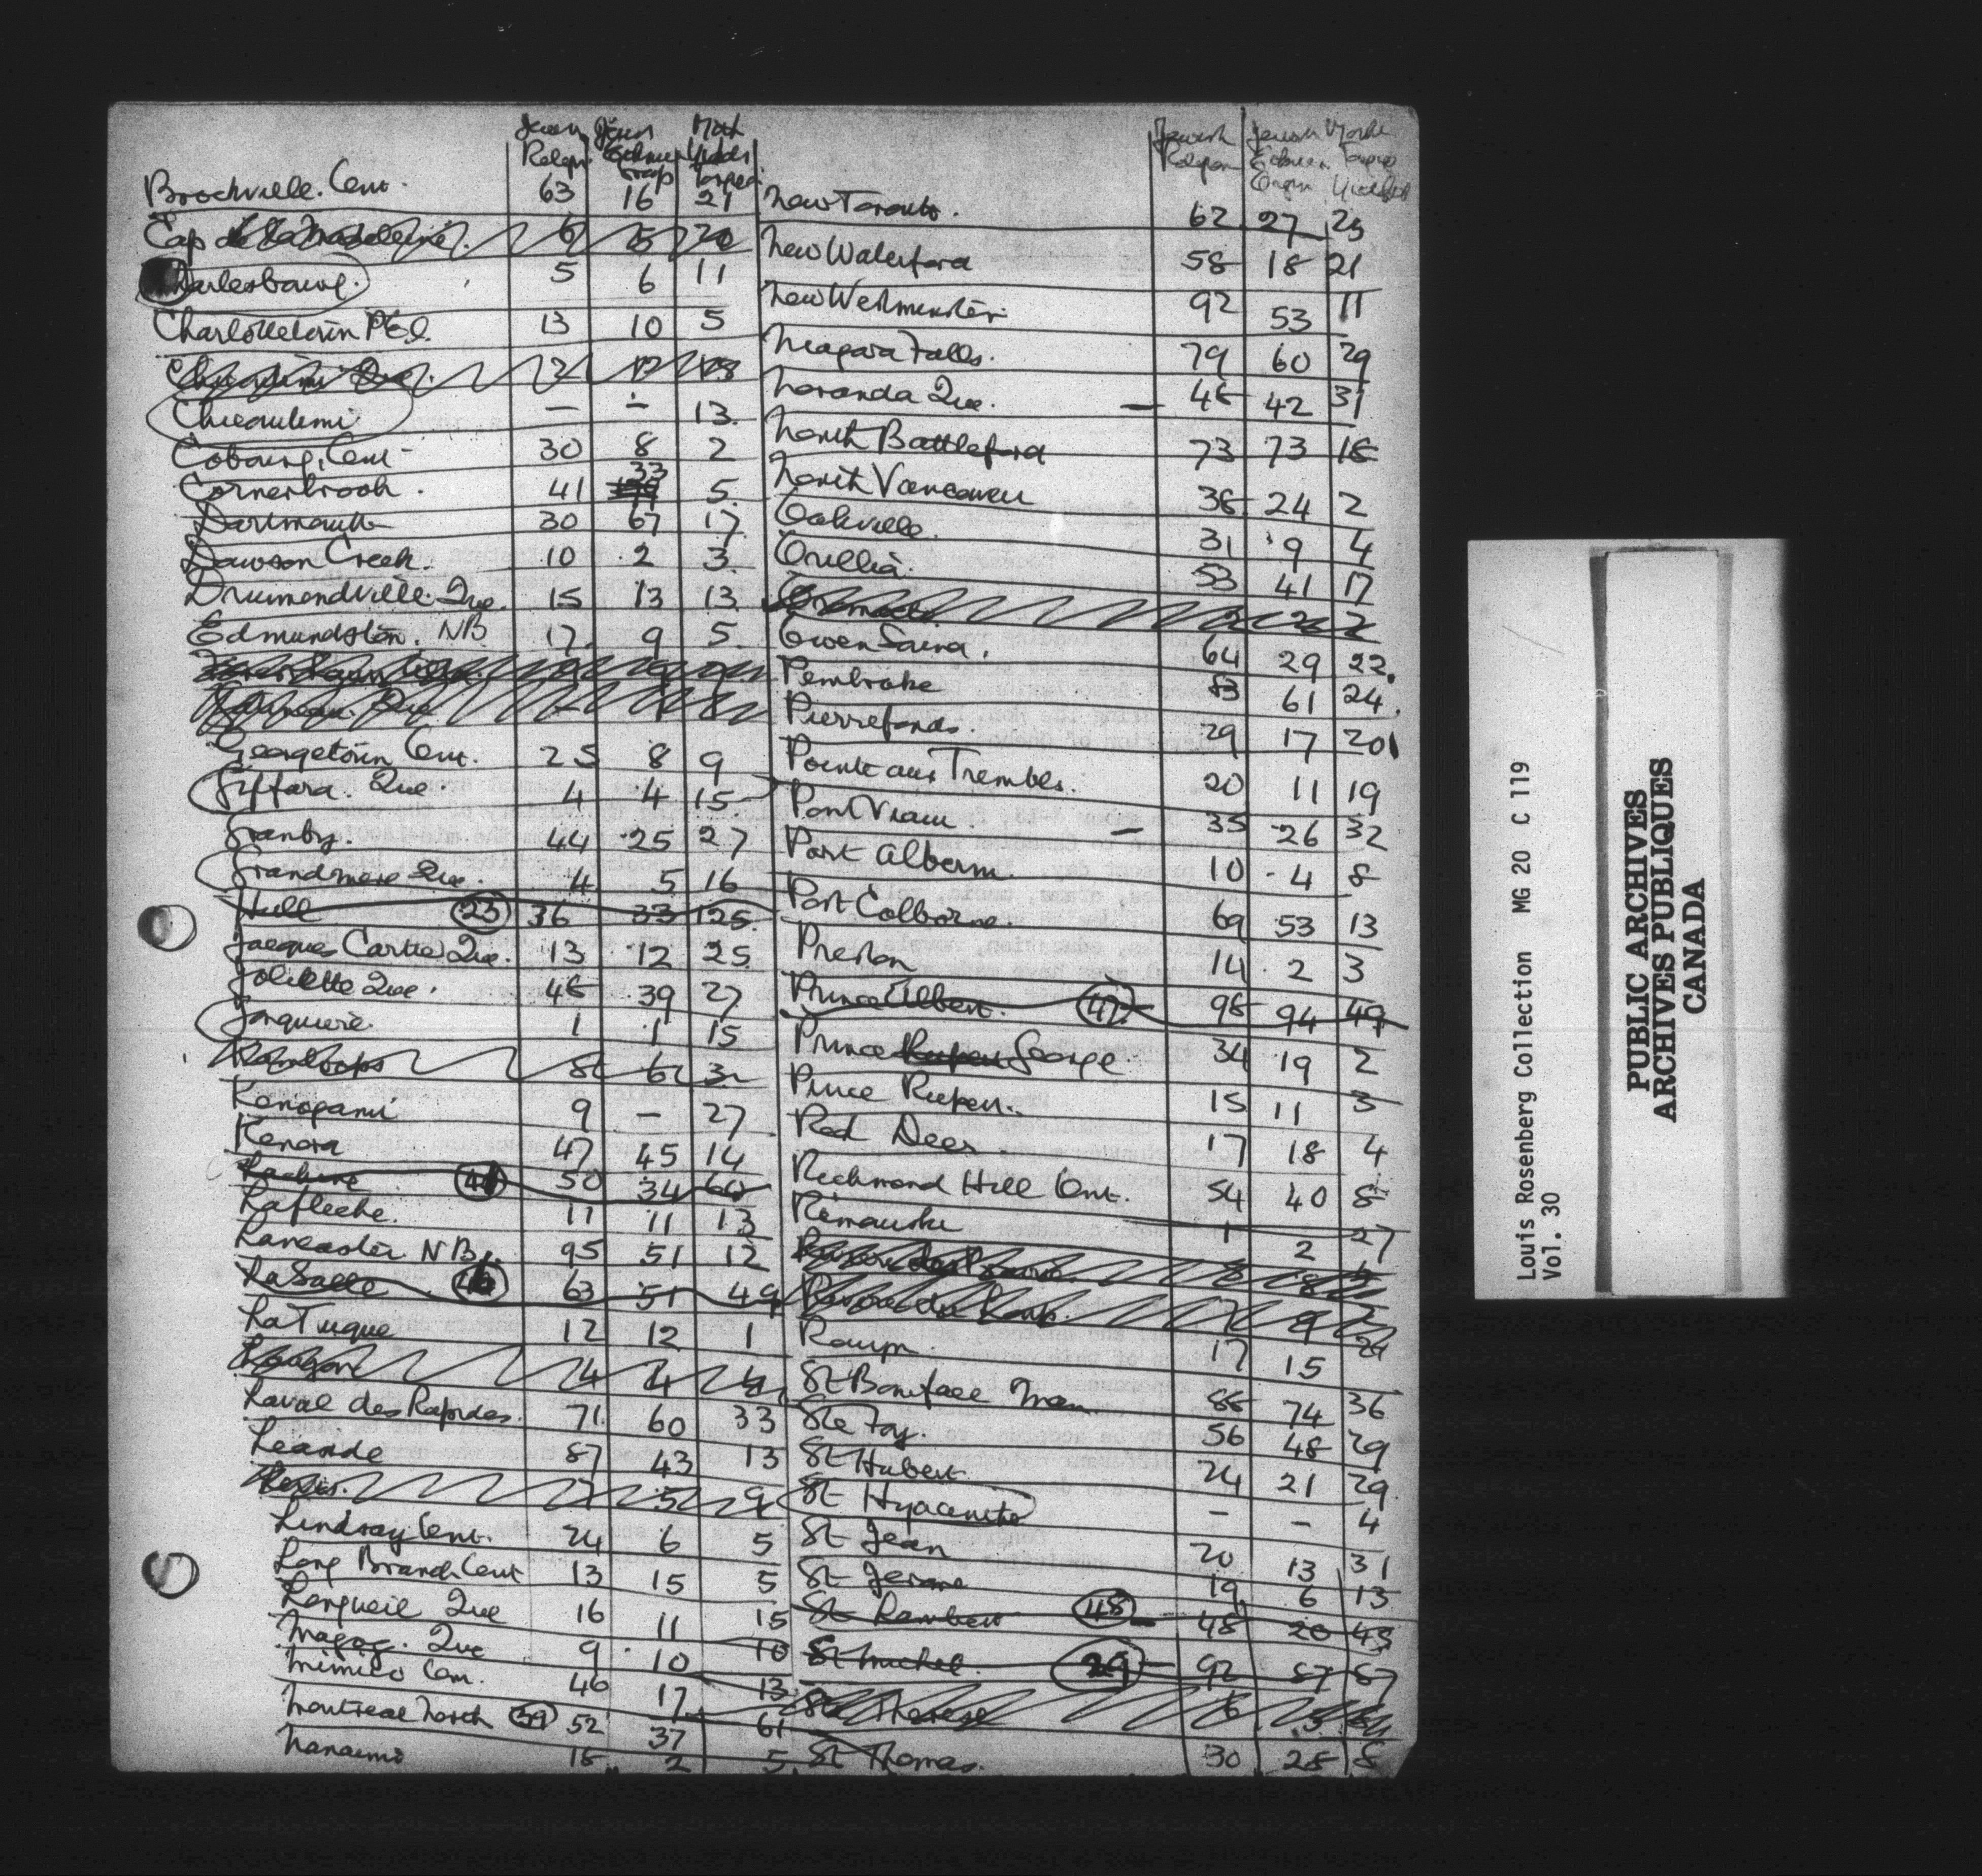 Jewish Relign Jewish Ethnic Group Moth Yidds Tongue
Brockville. Ont. 63 16 21
Cap de la Madeleine. 6 5 20
Charlesbourg. 5 6 11
Charlottetown PEI. 13 10 5
Chicoutimi Que.
Chicoutimi — — 13
Cobourg, Ont 30 8 2
Cornerbrook. 41 33 5
Dartmouth 30 67 17
Dawson Creek. 10 2 3
Drummondville Que. 15 13 13
Edmundston. NB 17 9 5
Gatineau Que
Georgetown Ont. 25 8 9
Giffard. Que. 4 4 15
Granby. 44 25 27
Grandmere Que. 4 5 16
Hull (23) 36 33 125
Jacques Cartier Que. 13 12 25
Joliette Que. 48 39 27
Jonquiere. 1 1 15
Kamloops
Kenogami 9 — 27
Kenora 47 45 14
Lachine 50 34 60
Lafleche. 11 11 13
Lancaster NB. 95 51 12
LaSalle 63 51 49
LaTuque 12 12 1
Lauzon 4 4
Laval des Rapides. 71 60 33
Leaside 87 43 13
Levis. 7 5 9
Lindsay Ont. 24 6 5
Long Branch Ont 13 15 5
Longueil Que 16 11 15
Magog. Que 9 10 10
Mimico Ont. 46 17 13
Montreal North (39) 52 37 61
Nanaimo 18 2 5
Jewish Religion Jewish Ethnic Origin Mother Tongue Yiddish
New Toronto. 62 27 23
New Waterford 58 18 21
New Westminster 92 53 11
Niagara Falls. 79 60 29
Noranda Que. — 48 42 31
North Battleford 73 73 18
North Vancouver 38 24 2
Oakville. 31 9 4
Orillia. 53 41 17
Oromocto
Owen Sound. 64 29 22
Pembroke 83 61 24
Pierrefonds. 29 17 20
Pointe aux Trembles. 20 11 19
Pont Viau. — 35 26 32
Port Alberni. 10 4 8
Port Colborne. 69 53 13
Preston 14 2 3
Prince Albert. (47) 98 94 49
Prince Rupert George. 34 19 2
Prince Rupert. 15 11 3
Red Deer 17 18 4
Richmond Hill Ont. 54 40 8
Rimouski 1 2 27
Riviere des Prairies.
Riviere du Loup. 7 9
Rouyn. 17 15 21
St Boniface Man 88 74 36
Ste Foy. 56 48 29
St Hubert 24 21 29
St Hyacinthe — — 4
St Jean 20 13 31
St Jerome 19 6 13
St Lambert (48) 48 20 49
St Michel. (29) 92 87 87
Ste Therese 6 5
St Thomas. 30 28 8
Louis Rosenberg Collection MG 20 C 119
Vol. 30
PUBLIC ARCHIVES
ARCHIVES PUBLIQUES
CANADA